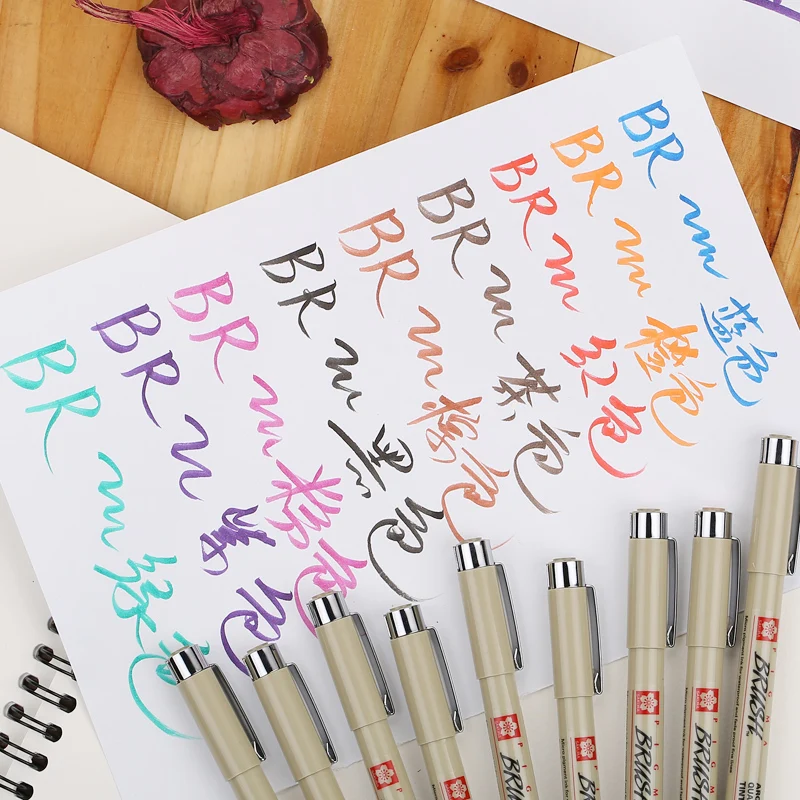 BR 绿色
BR 紫色
BR 色
BR 黑色
BR 色
BR 茶色
BR 红色
BR 橙色
BR 蓝色
PIGMA
BRUSH
PIGMA
BRUSH
PIGMA
BRUSH
PIGMA
BRUSH
PIGMA
BRUSH